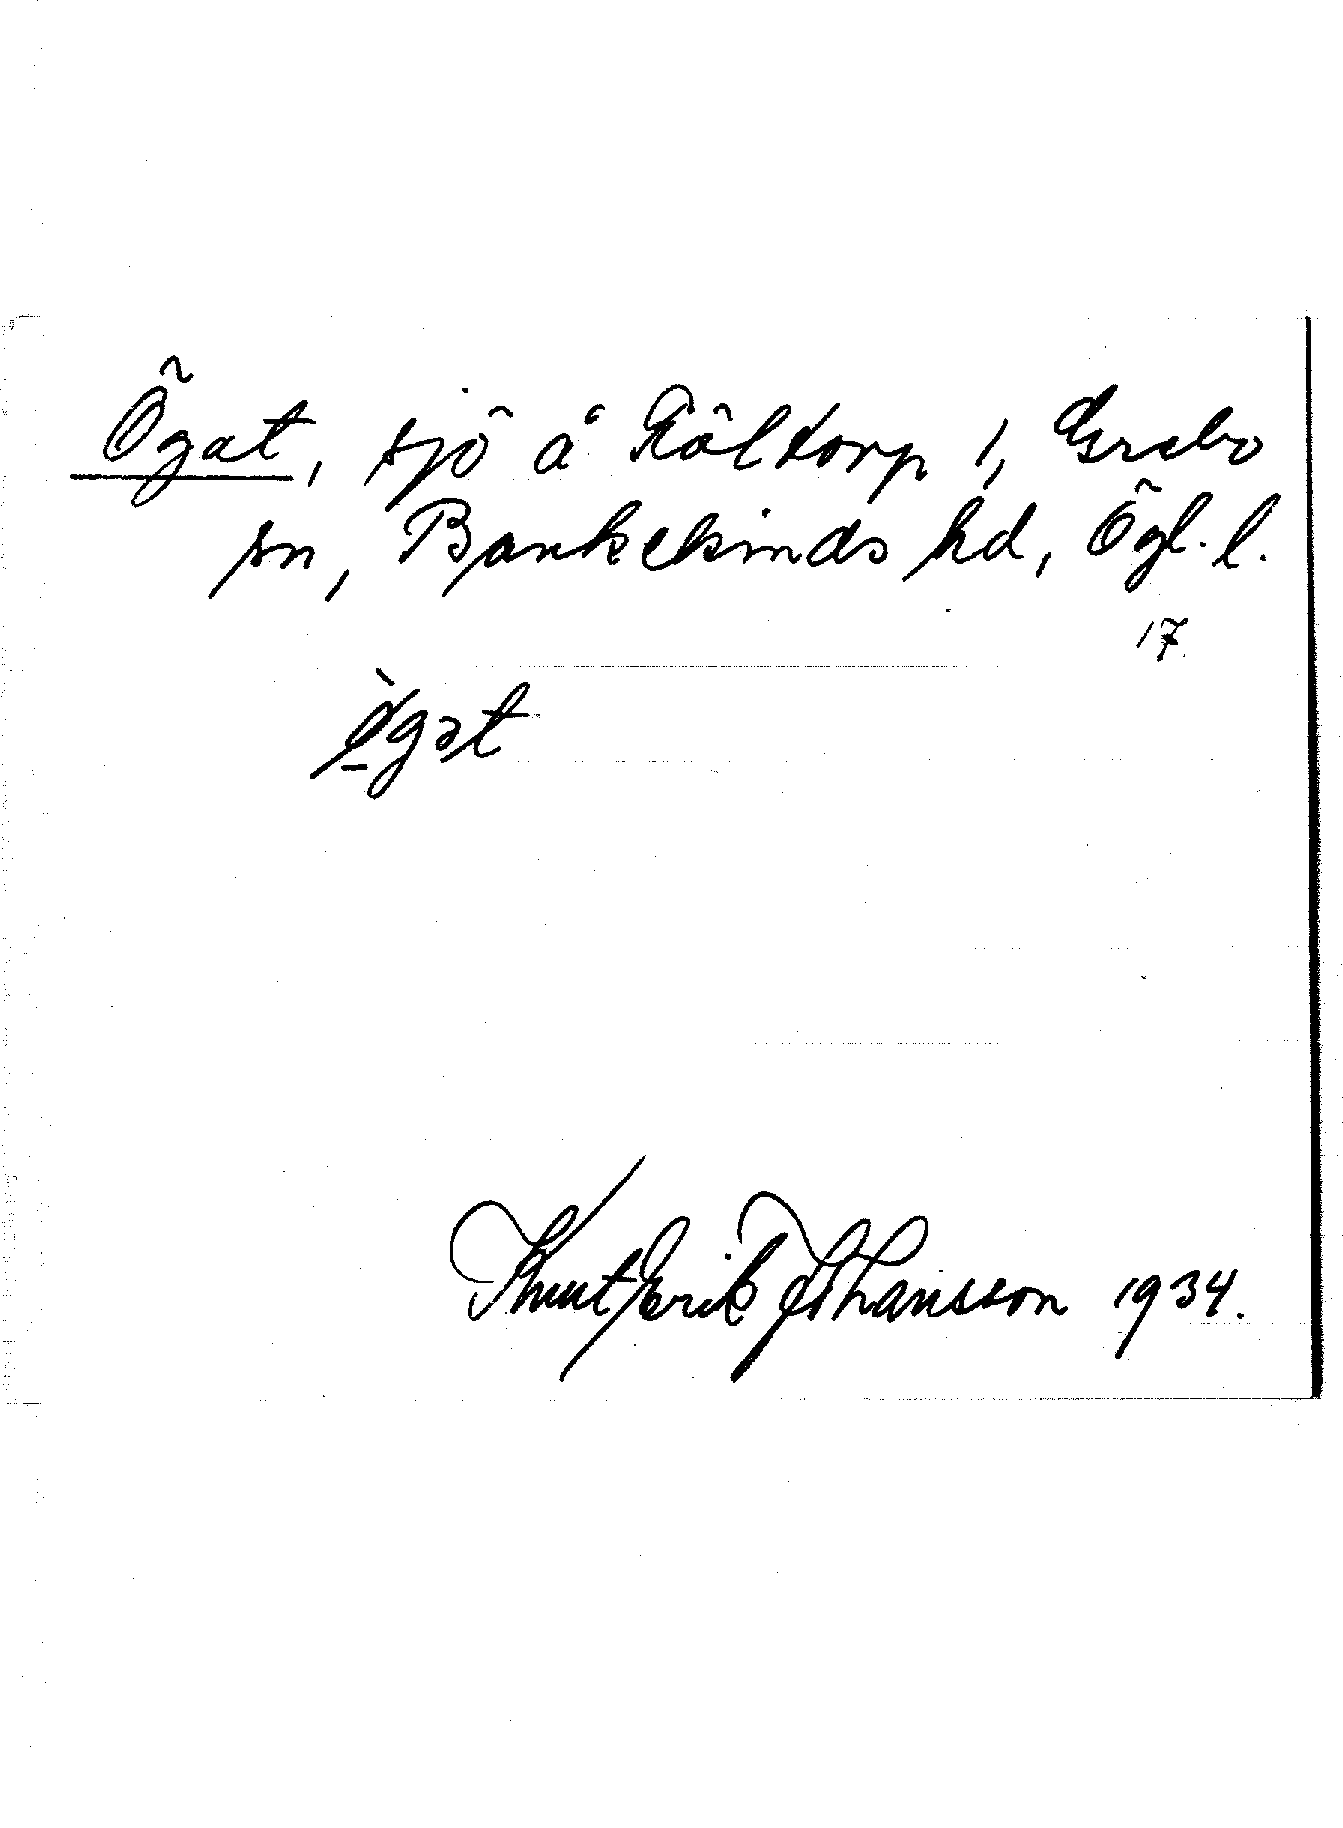 Ögat, sjö å Költorp 1, Grebo
sn, Bankekinds hd, Ögl. l.
17
ø̀gət
Knut Erik Johansson 1934.